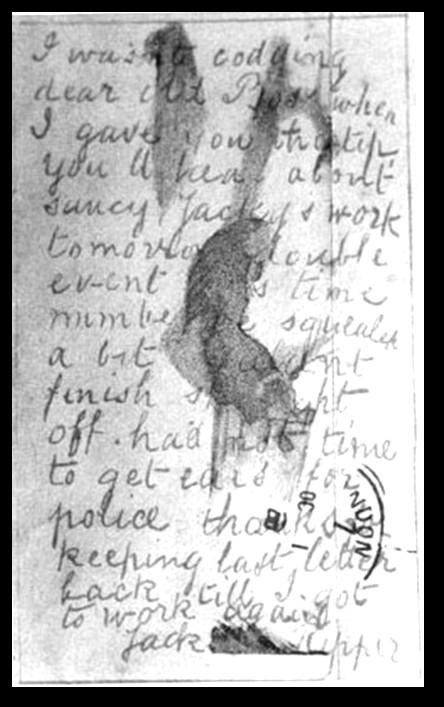 I wasnt codding
dear old Boss when
I gave you the tip
you'll hear about
saucy Jackys work
tomorrow double
event time
squealed
a bit
finish
off. had not time
to get ears for
police thanks
keeping last letter
back till I got
to work again
Jack Ripper
OC